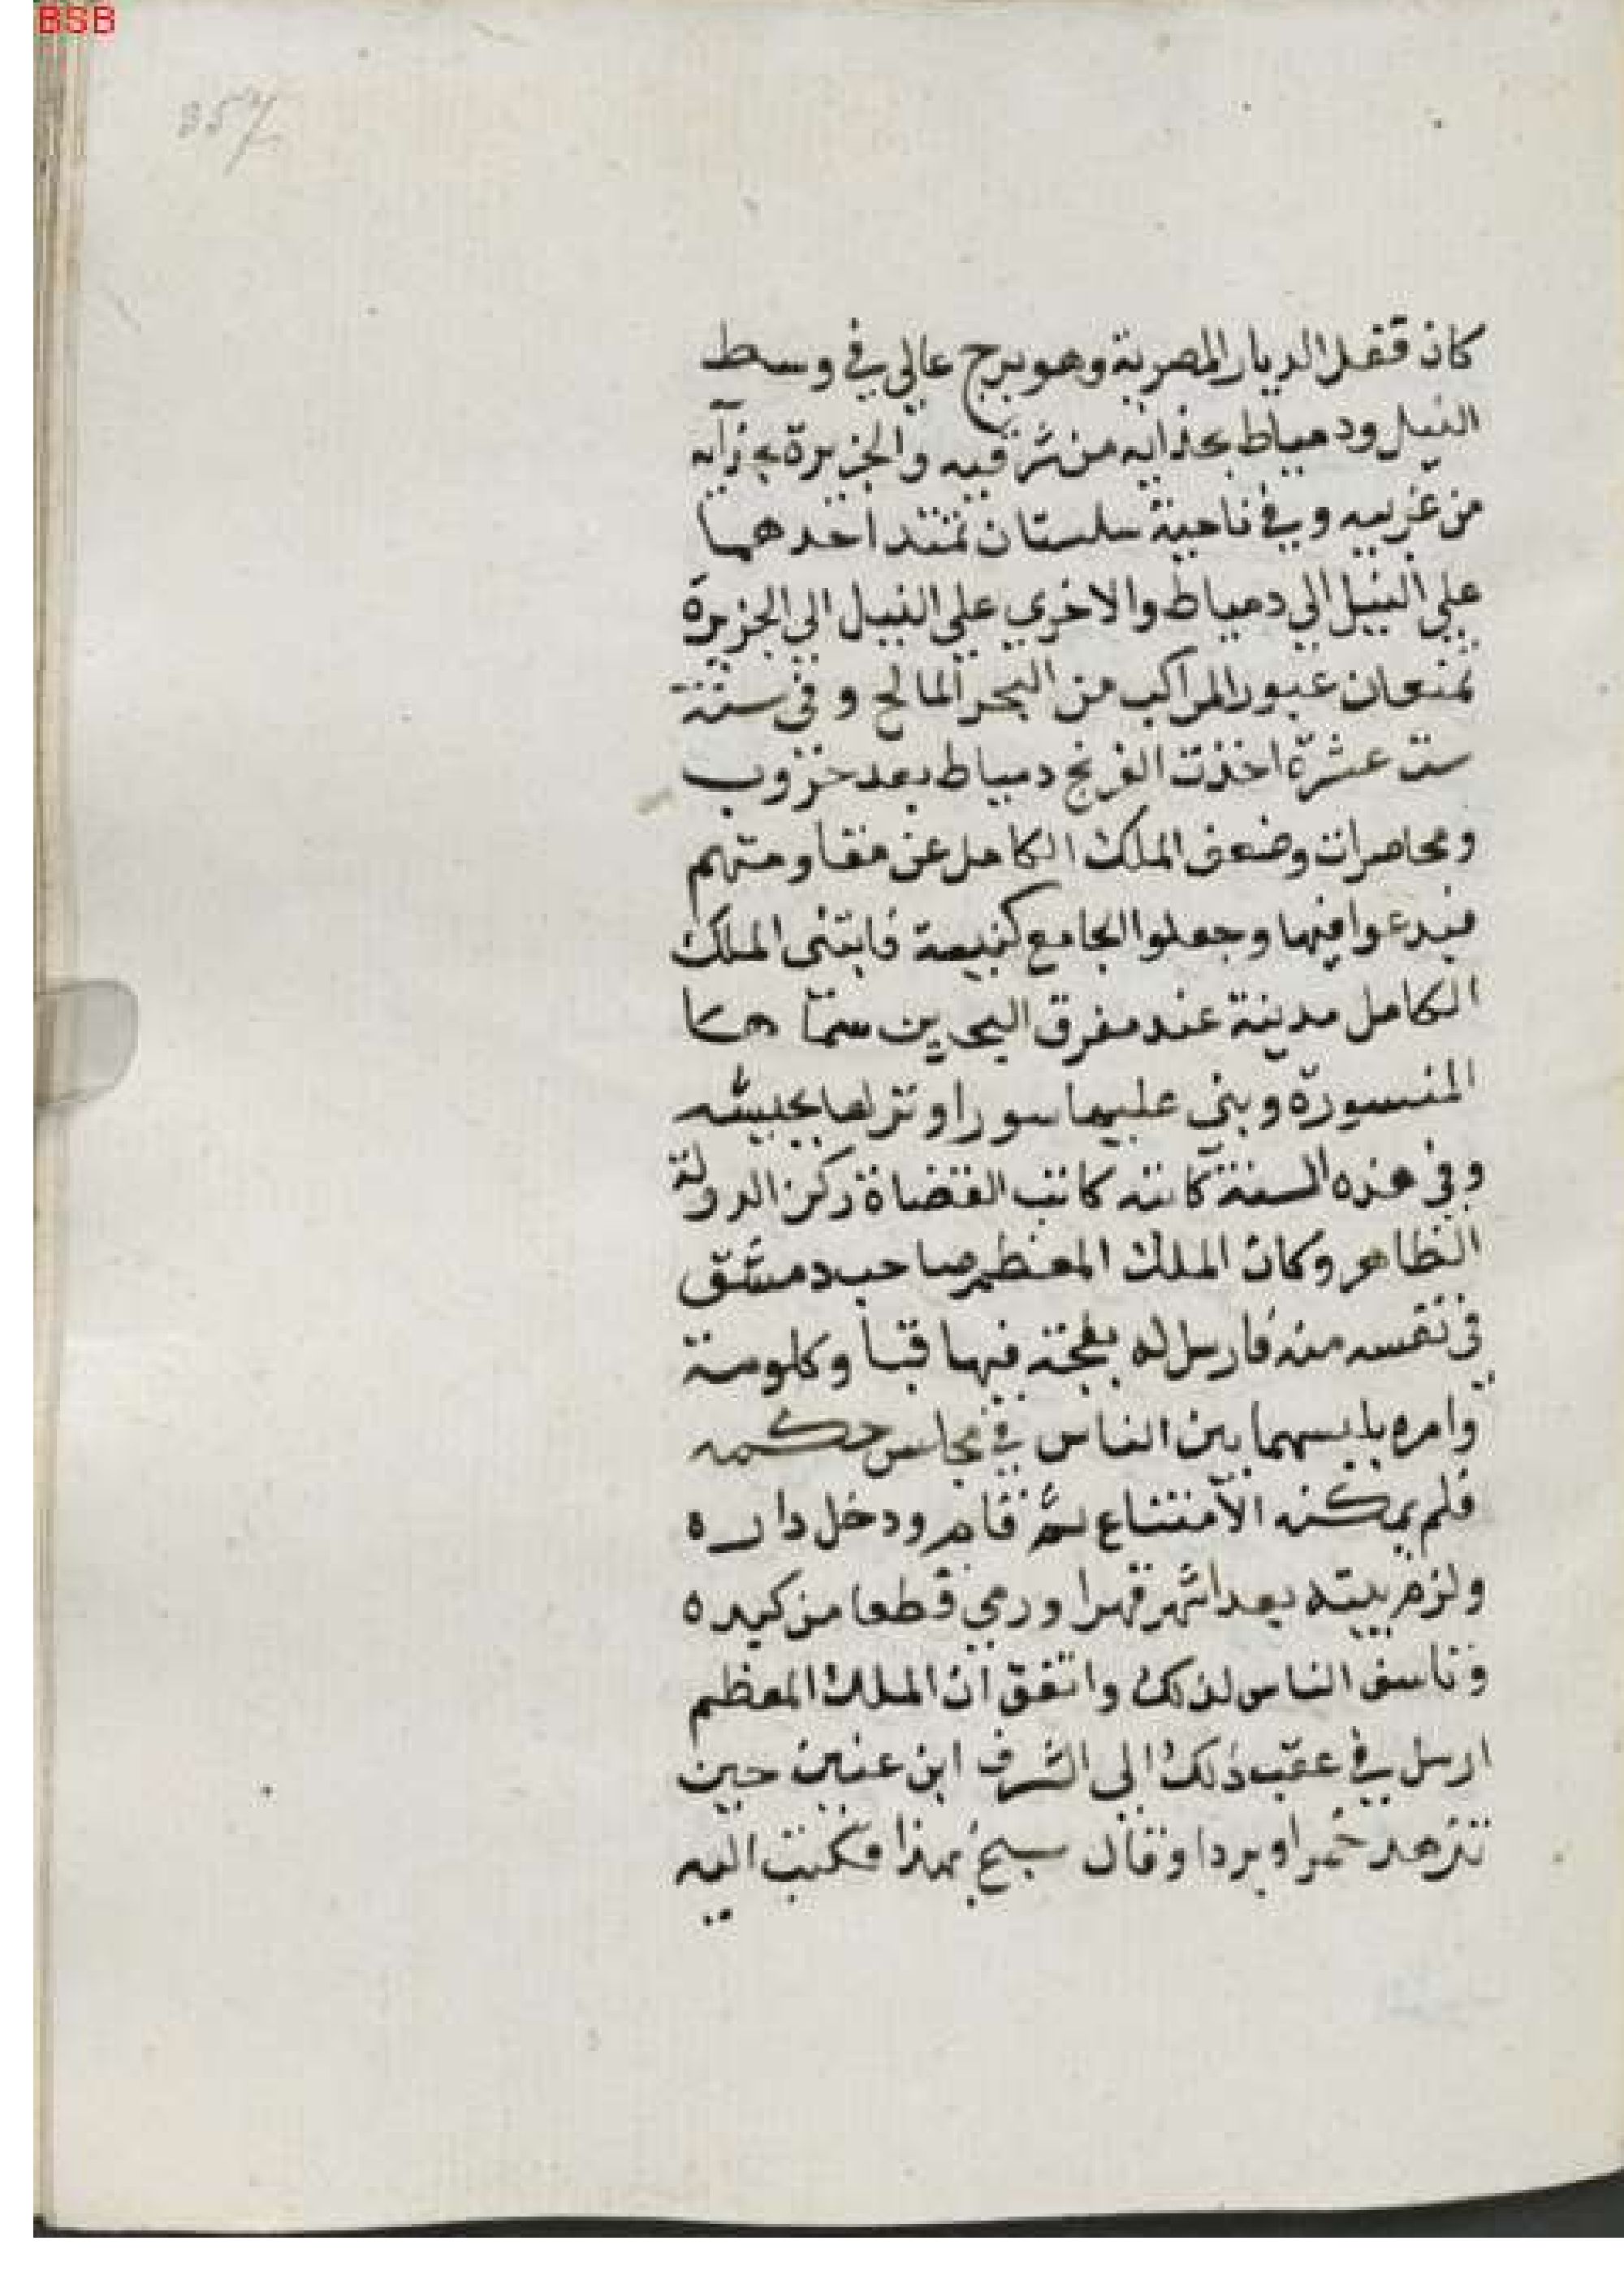 BSB
357
كان قفل الديار المصرية وهو برج عالي في وسط
النيل ودمياط بحذايه من شرقيه والجزيرة بحذآيه
من غربيه وفي ناحيته سلستان تمتد احدهما
علي النيل الي دمياط والاخري علي النيل الى الجزيرة
تمنعان عبور المراكب من البحر المالح وفى سنة
ست عشرة اخذت الفرنج دمياط بعد حروب
ومحاصرات وضعف الملك الكامل عن مقاومتهم
فبدعوا فيها وجعلوا الجامع كنيسة فابتنى الملك
الكامل مدينة عند مفرق البحرين سمّا ها
المنسورة وبني عليها سورا ونزلها بجيشه
وفي هذه السنة كاتبه كاتب القضاة ركن الدولة
الظاهر وكان الملك المعظم صاحب دمشق
في نفسه منه فارسل له بقجة فيها قبا وكلوتة
وامره بلبسهما بين الناس في مجلس حكمه
فلم يمكنه الامتناع ثم قام ودخل داره
ولزم بيته بعد اشهر قهرا ورمي قطعا من كبده
وتاسف الناس لذلك واتفق ان الملك المعظم
ارسل في عقب ذلك الى الشرف ابن عنين حين
تزهد خمرا وبردا وقال سبح بهذا فكتب اليه